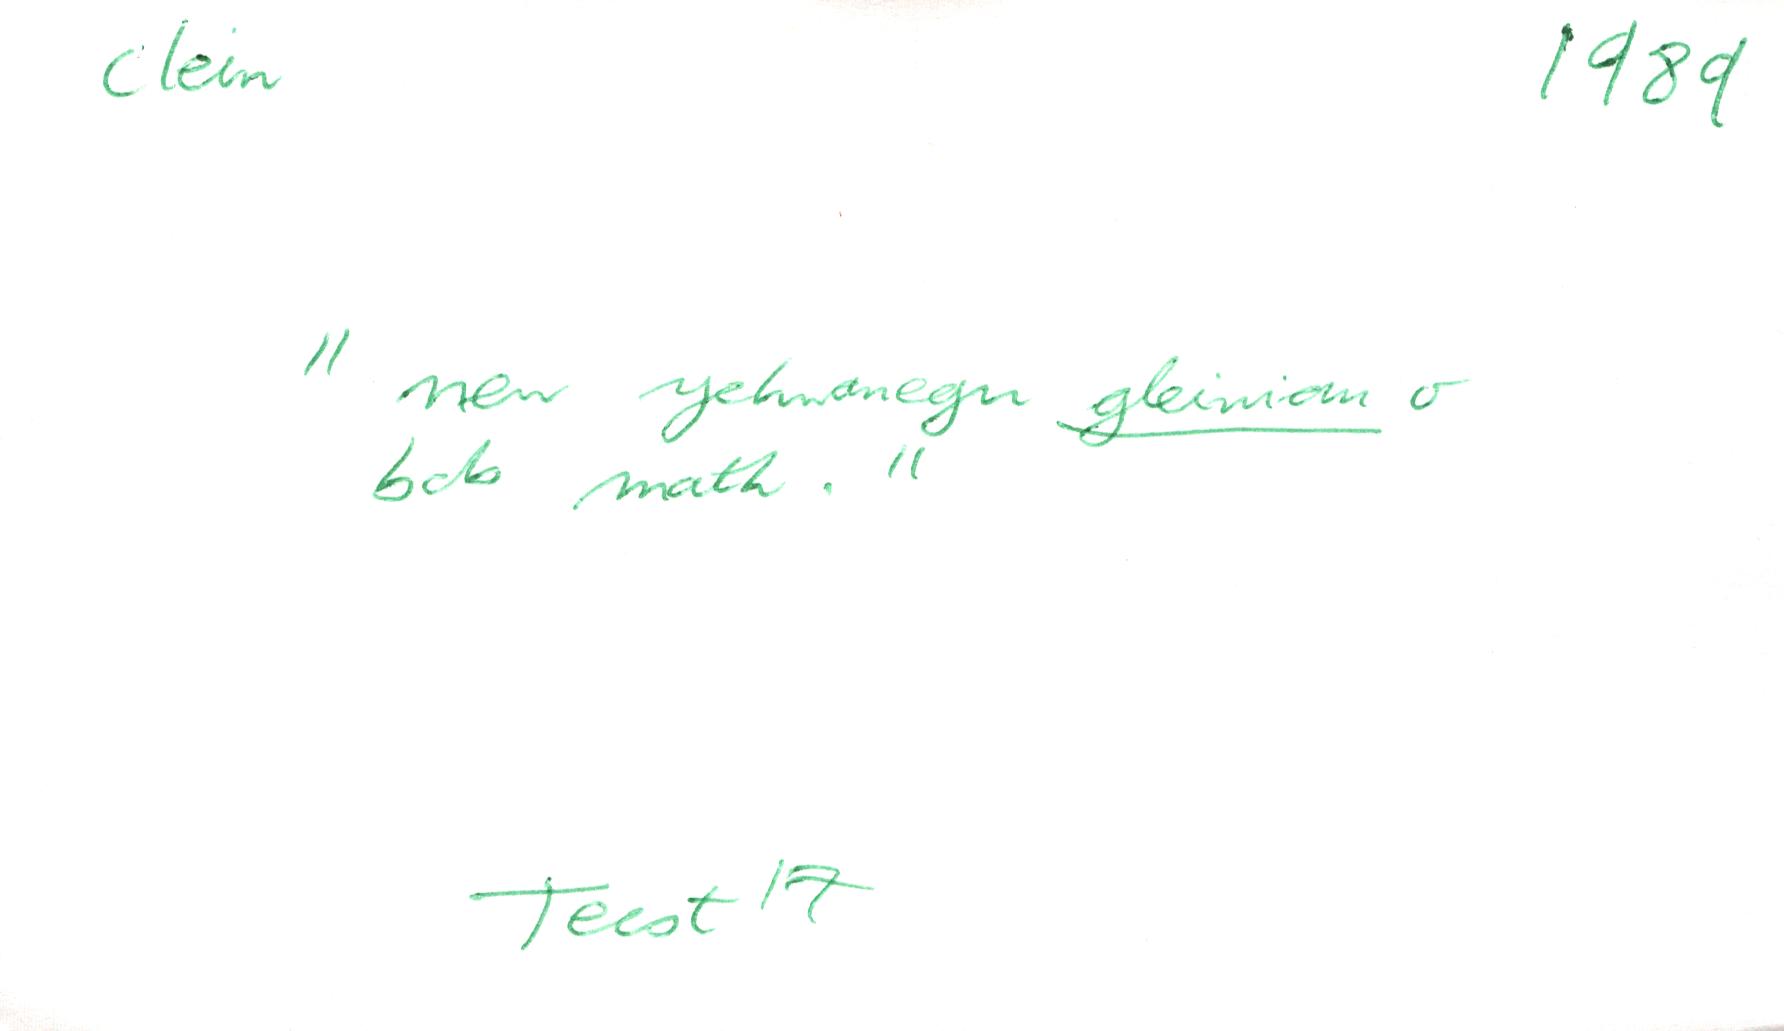 clein 1989
" neu ychwanegu gleiniau o
bob math . "
Tecst 17